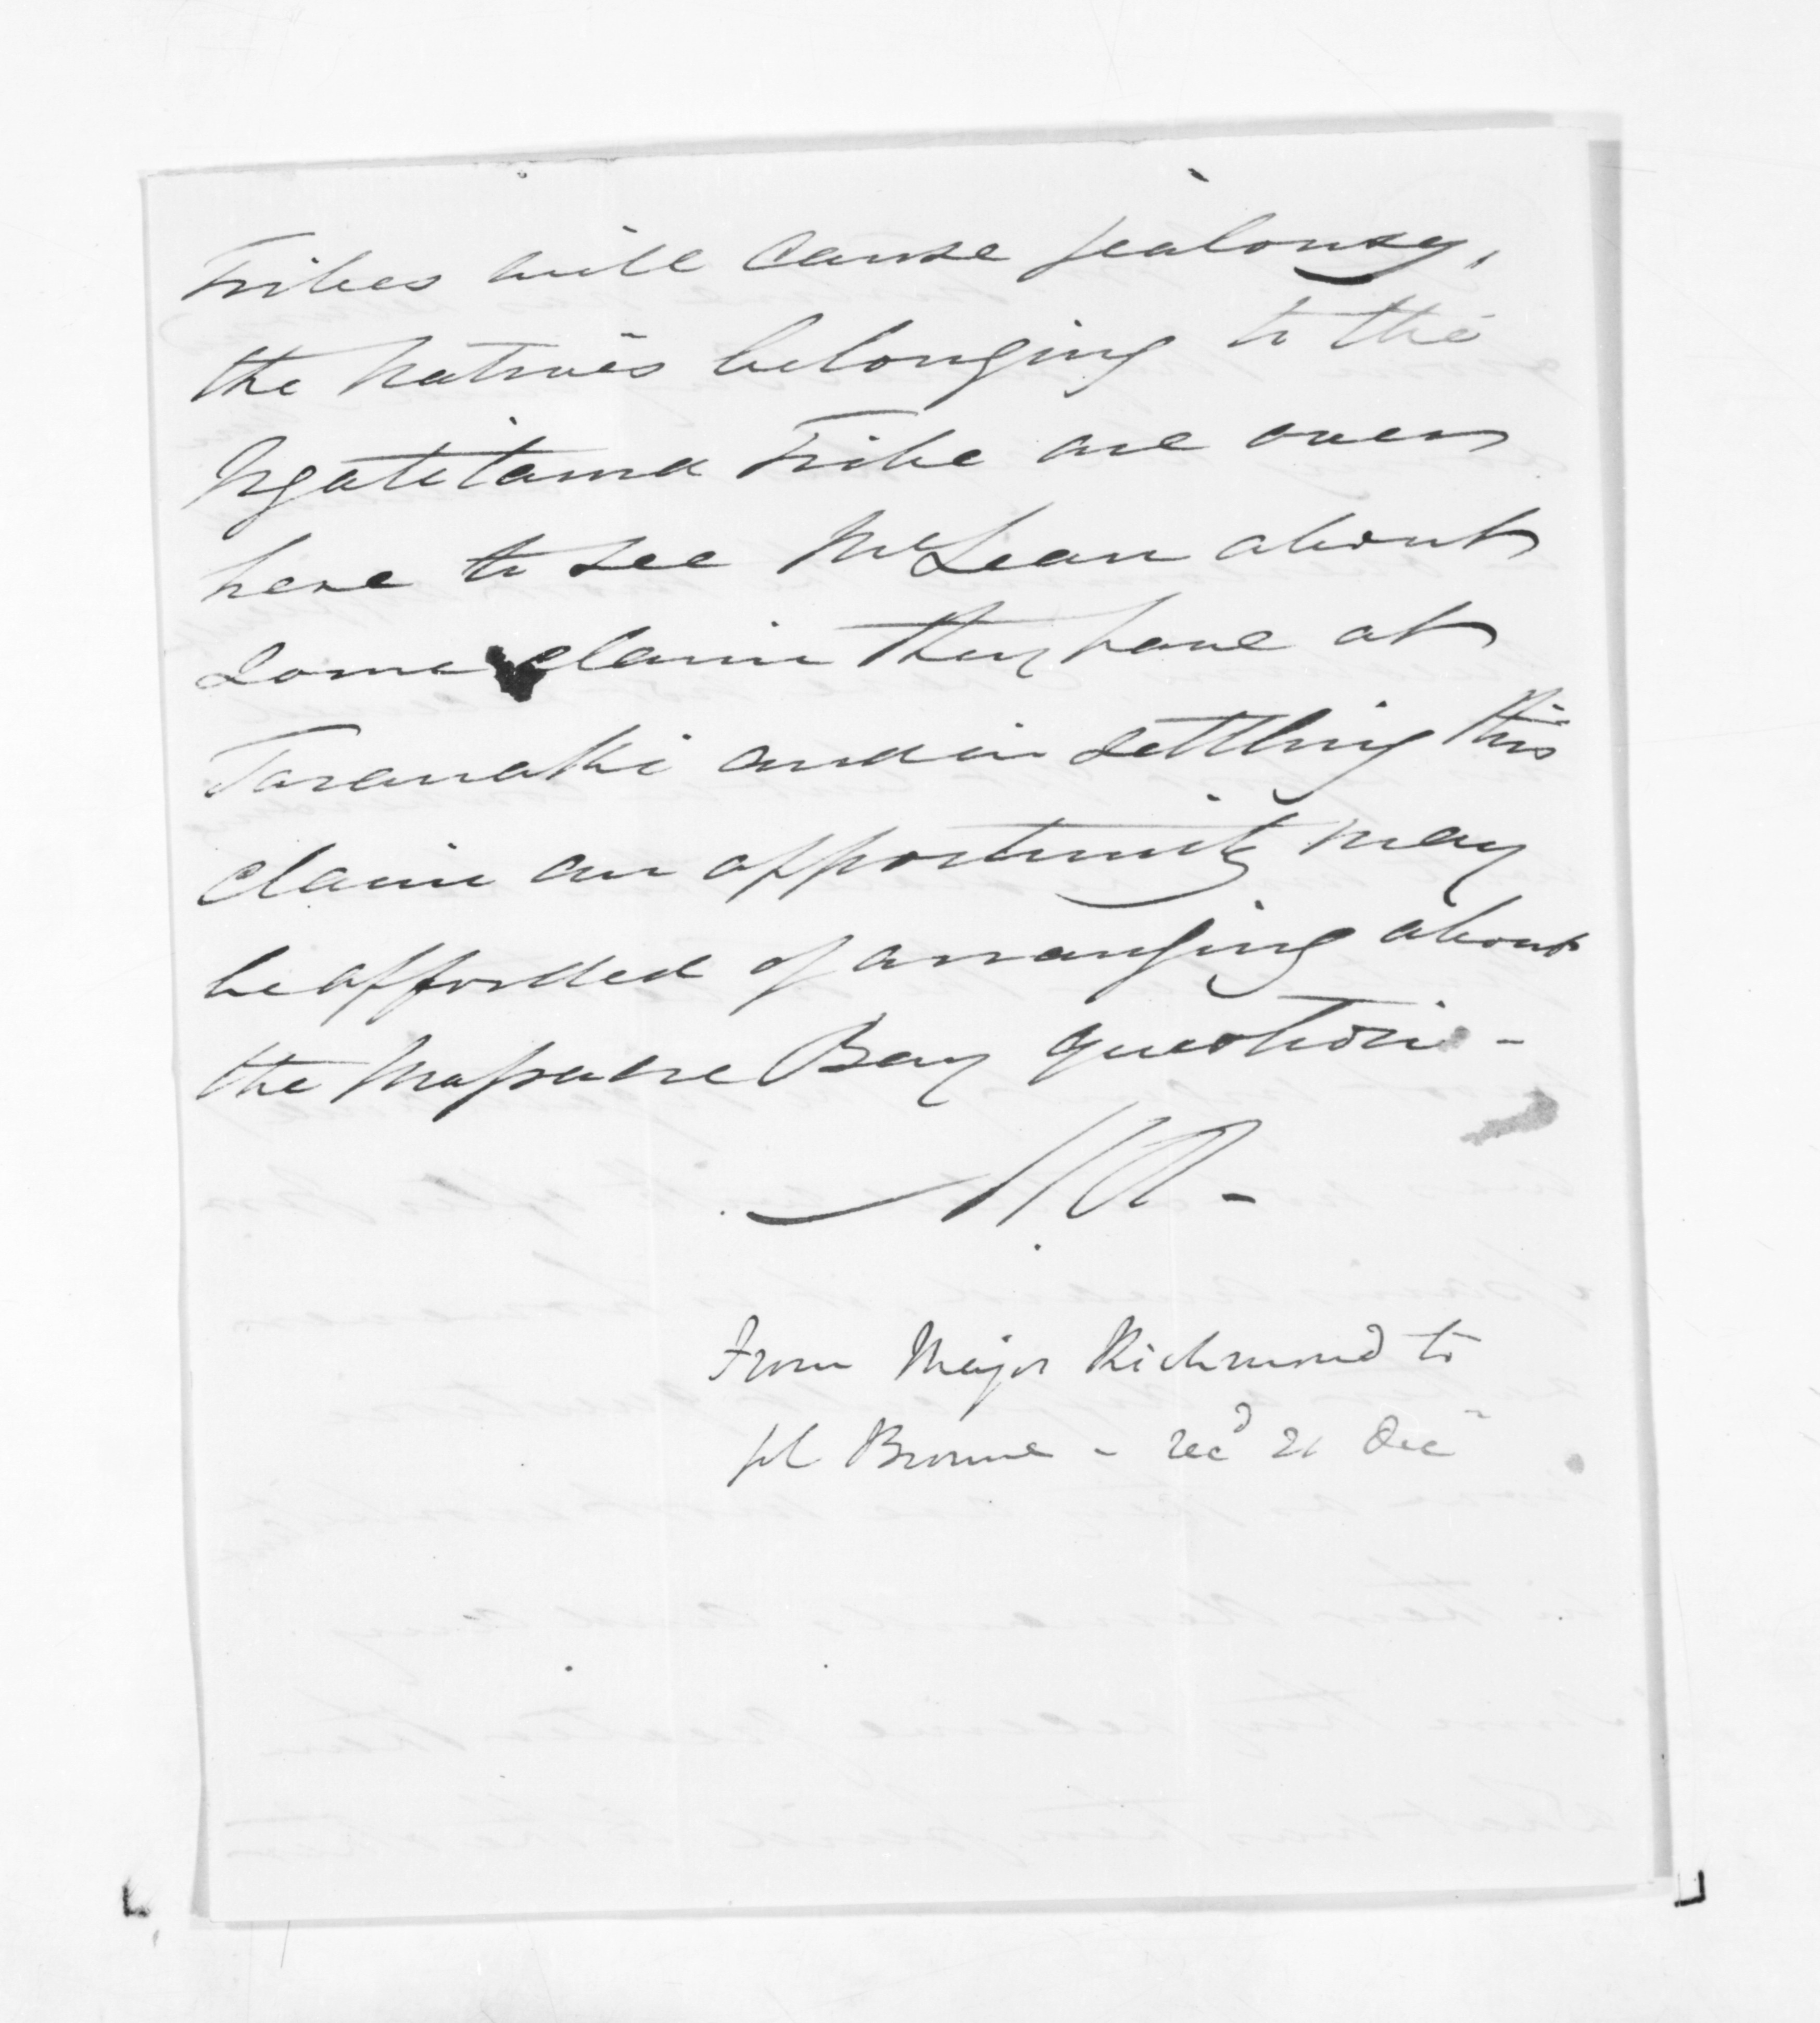 Tribes will cause jealousy,
the Natives belonging to the
Ngatitama Tribe are over
here to see McLean about
some claim they have at
Taranaki and in settling this
claim an opportunity may
be afforded of arranging about
the Massacre Bay question -
From Major Richmond to
Col Browne - recd 21 Dec